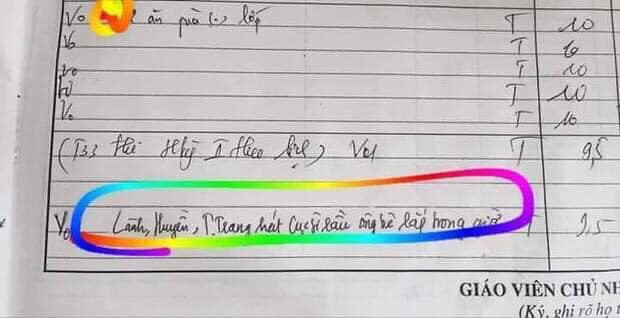 Vo ăn quà (.) lớp T 10
Vo T 10
Vo T 10
Vo T 10
Vo T 10
(T33 thi Hkỳ I theo lịch) Vo1 T 9,5
Vo Lành, Huyền, T.Trang hát Cục sì lầu ông bê lắp trong giờ T 9,5
GIÁO VIÊN CHỦ NH
(Ký, ghi rõ họ t